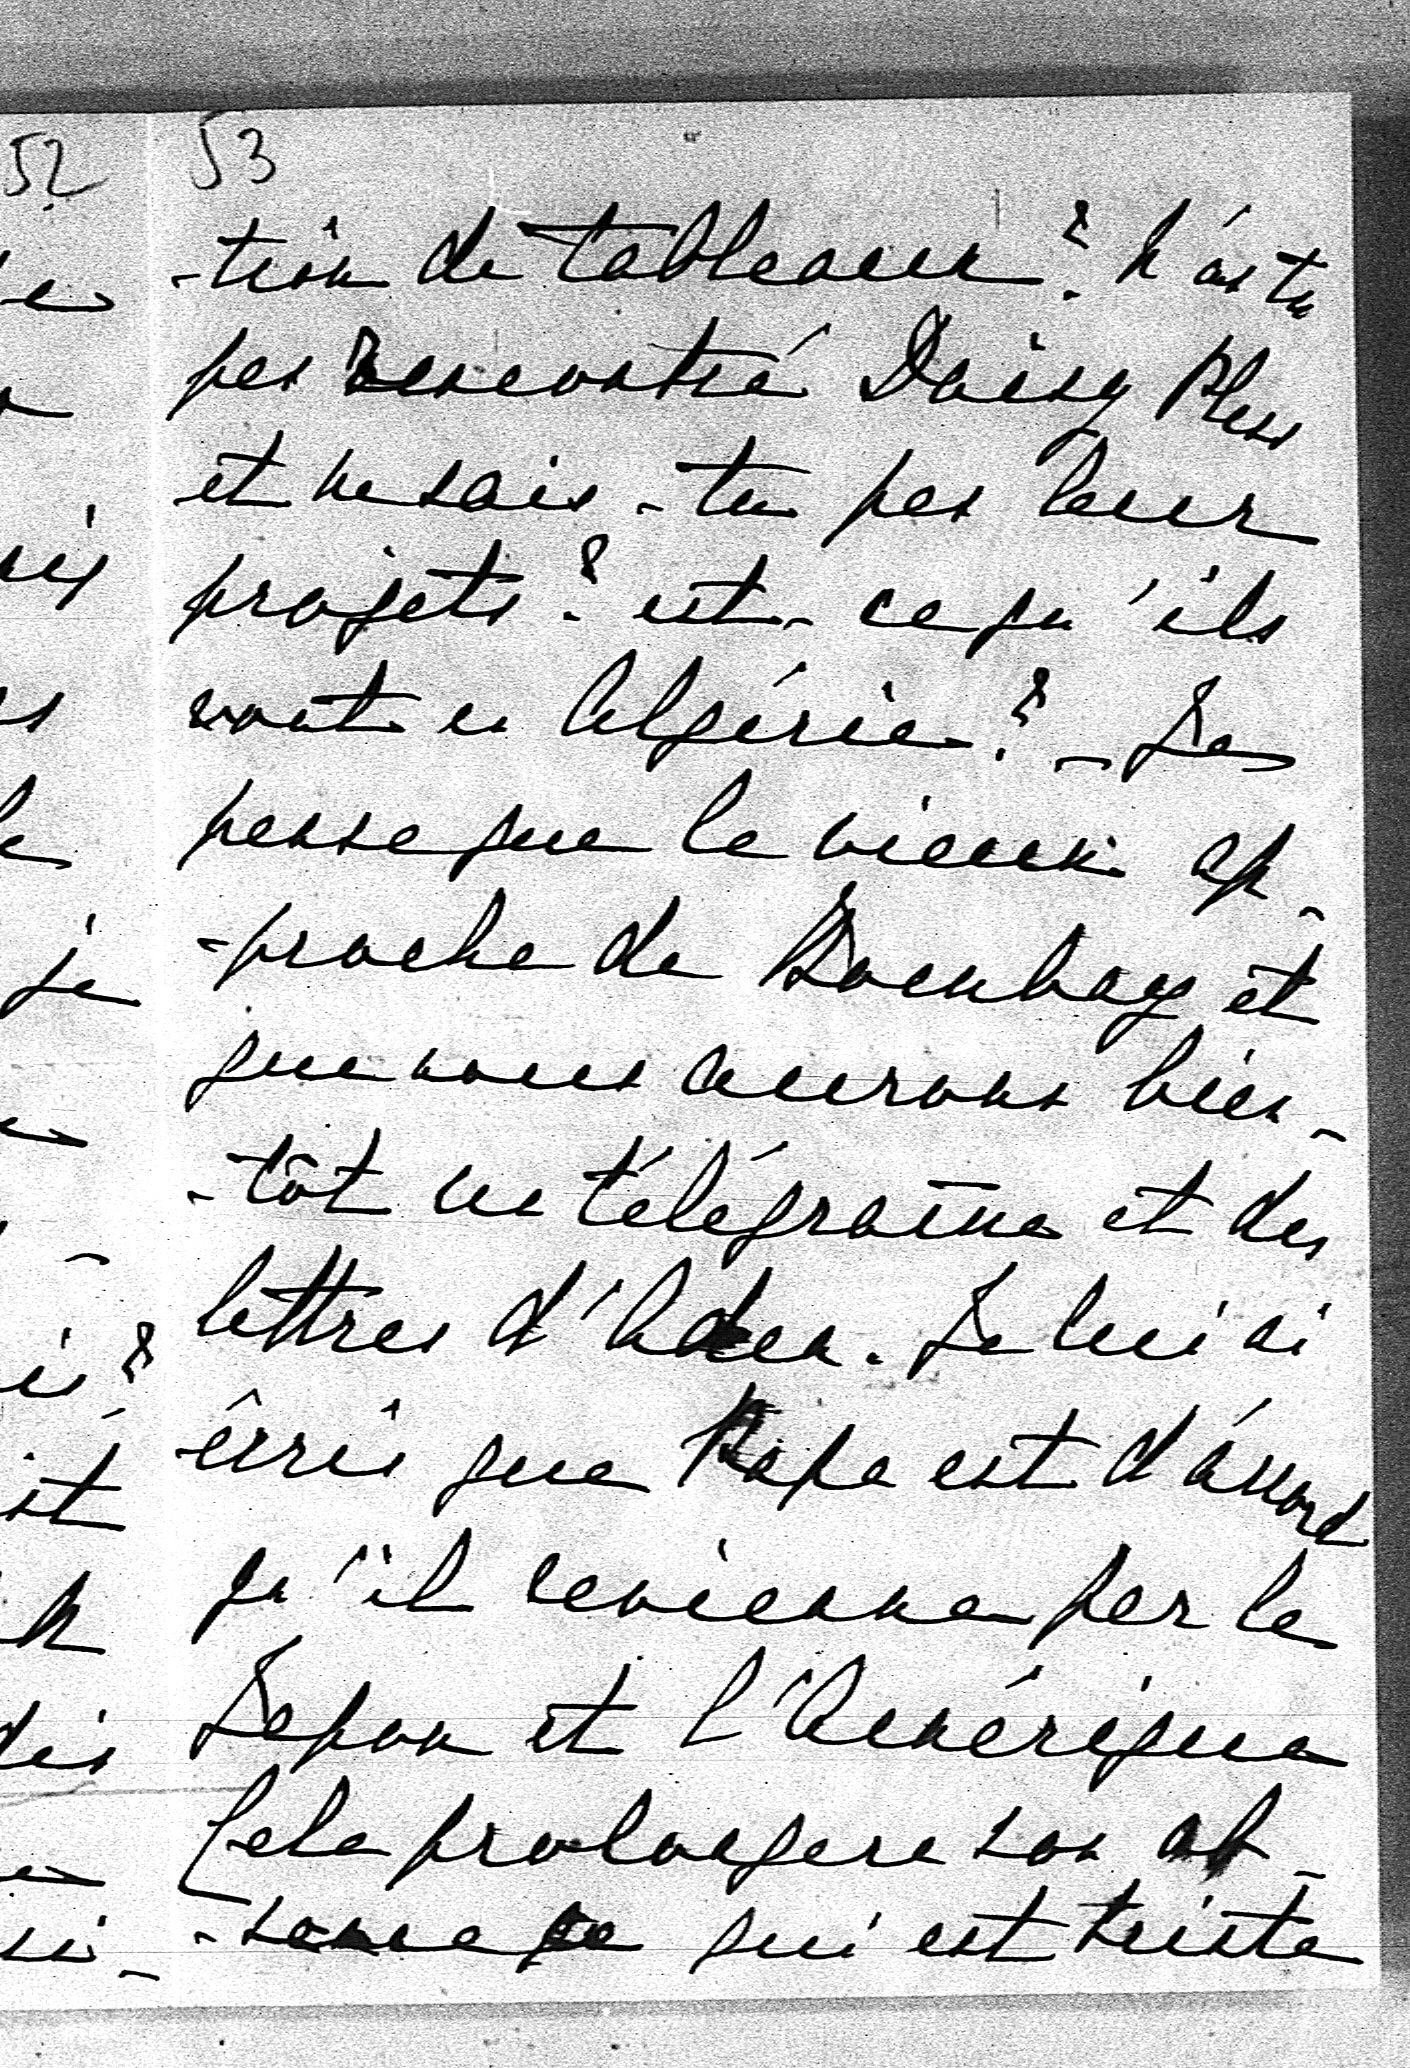 52 53
-tion de tableaux? N'as tu
pas rencontré Daisy Pless
et ne sais-tu pas leur
projets? est-ce qu'ils
vont en Algérie? - Je
pense que le vieux ap-
-proche de Bombay et
que nous aurons bien-
-tôt un télégramme et des
lettres d'Aden. Je lui ai
écris que Papa est d'accord
qu'il revienne par le
Japon et l'Amérique
Cela prolongera son ab-
-sence ce qui est triste
je